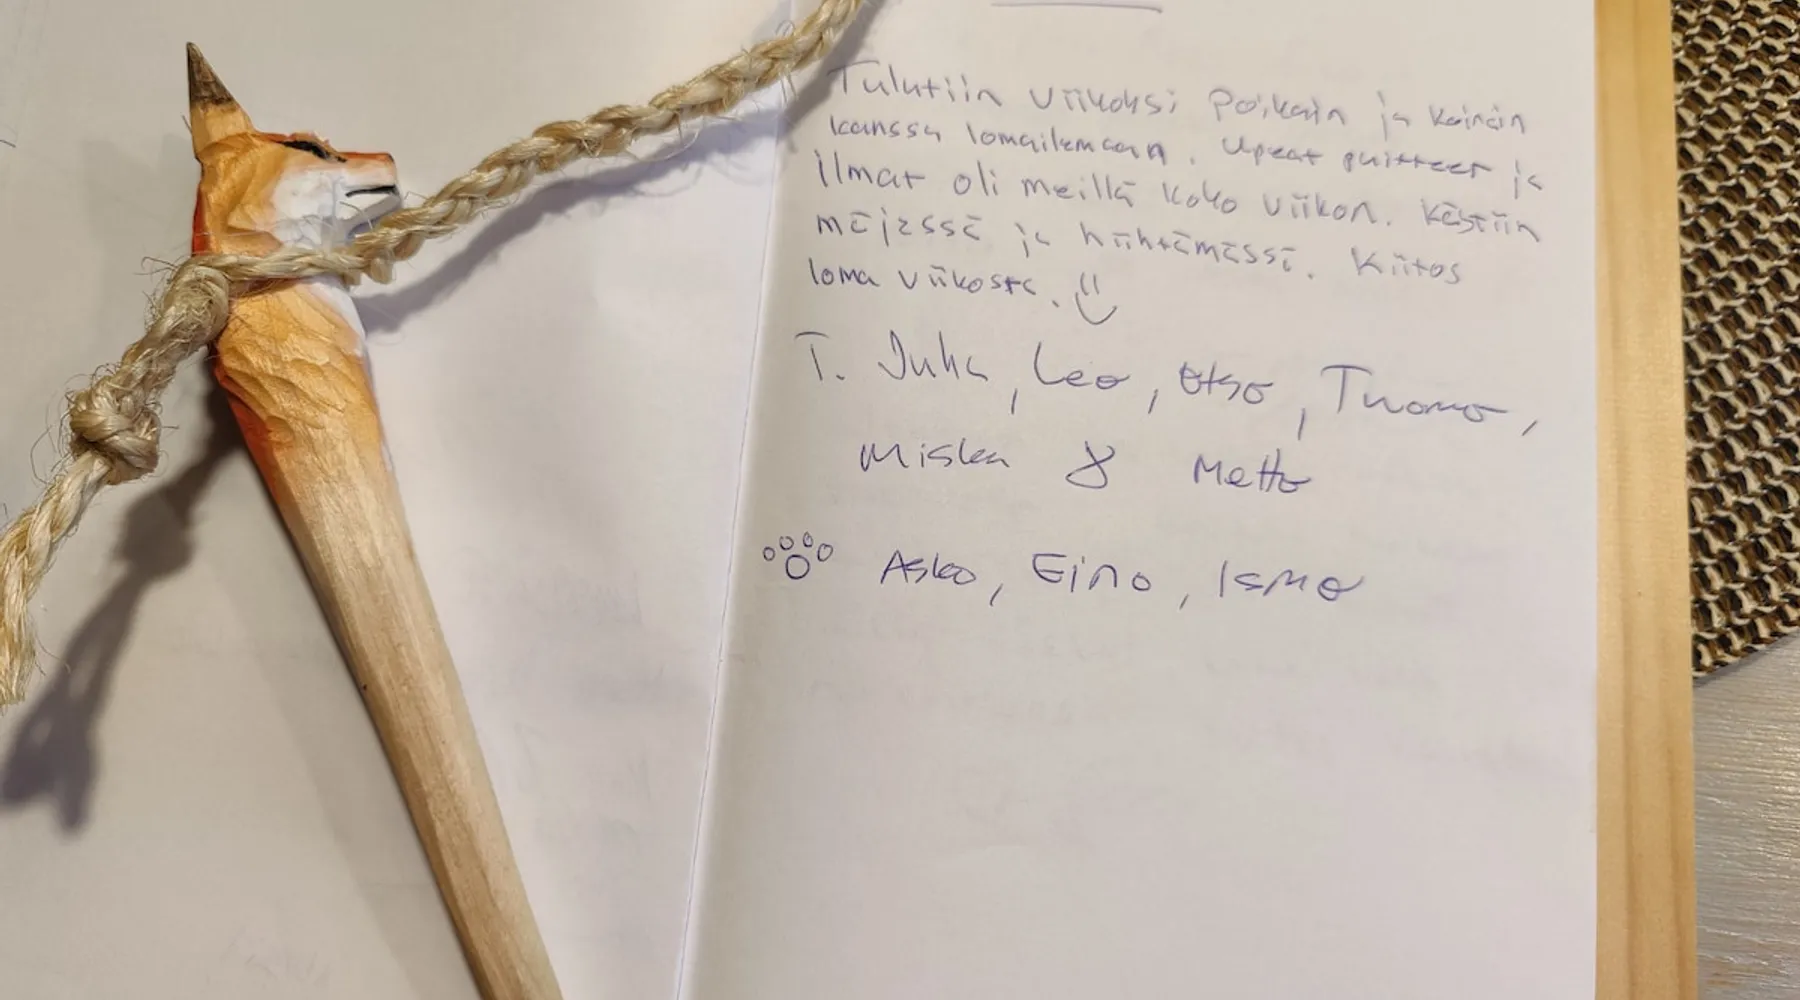 Tulutiin viikoksi poikain ja koirain
kanssa lomailemaan. Upeat puitteet ja
ilmat oli meillä koko viikon. Käytiin
mäjessä ja hiihtämässä. Kiitos
loma viikosta. :)
T. Juha, Leo, Otso, Tuomo,
Miska & Matto
Asko, Eino, Ismo